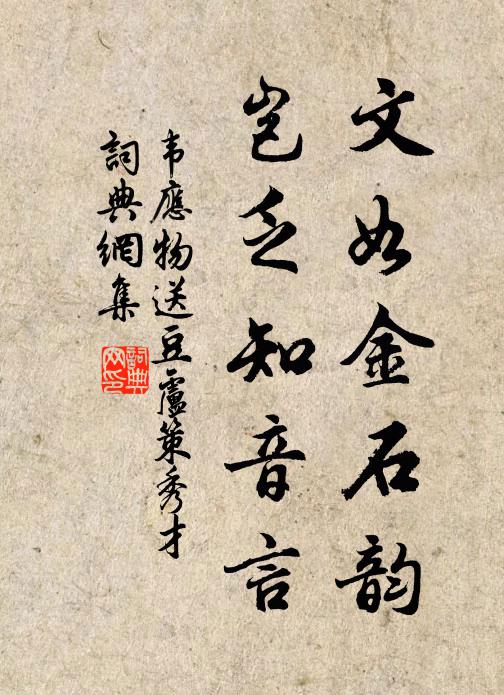 文如金石韵
岂乏知音言
韦應物送豆盧策秀才
詞典網集
詞典网印